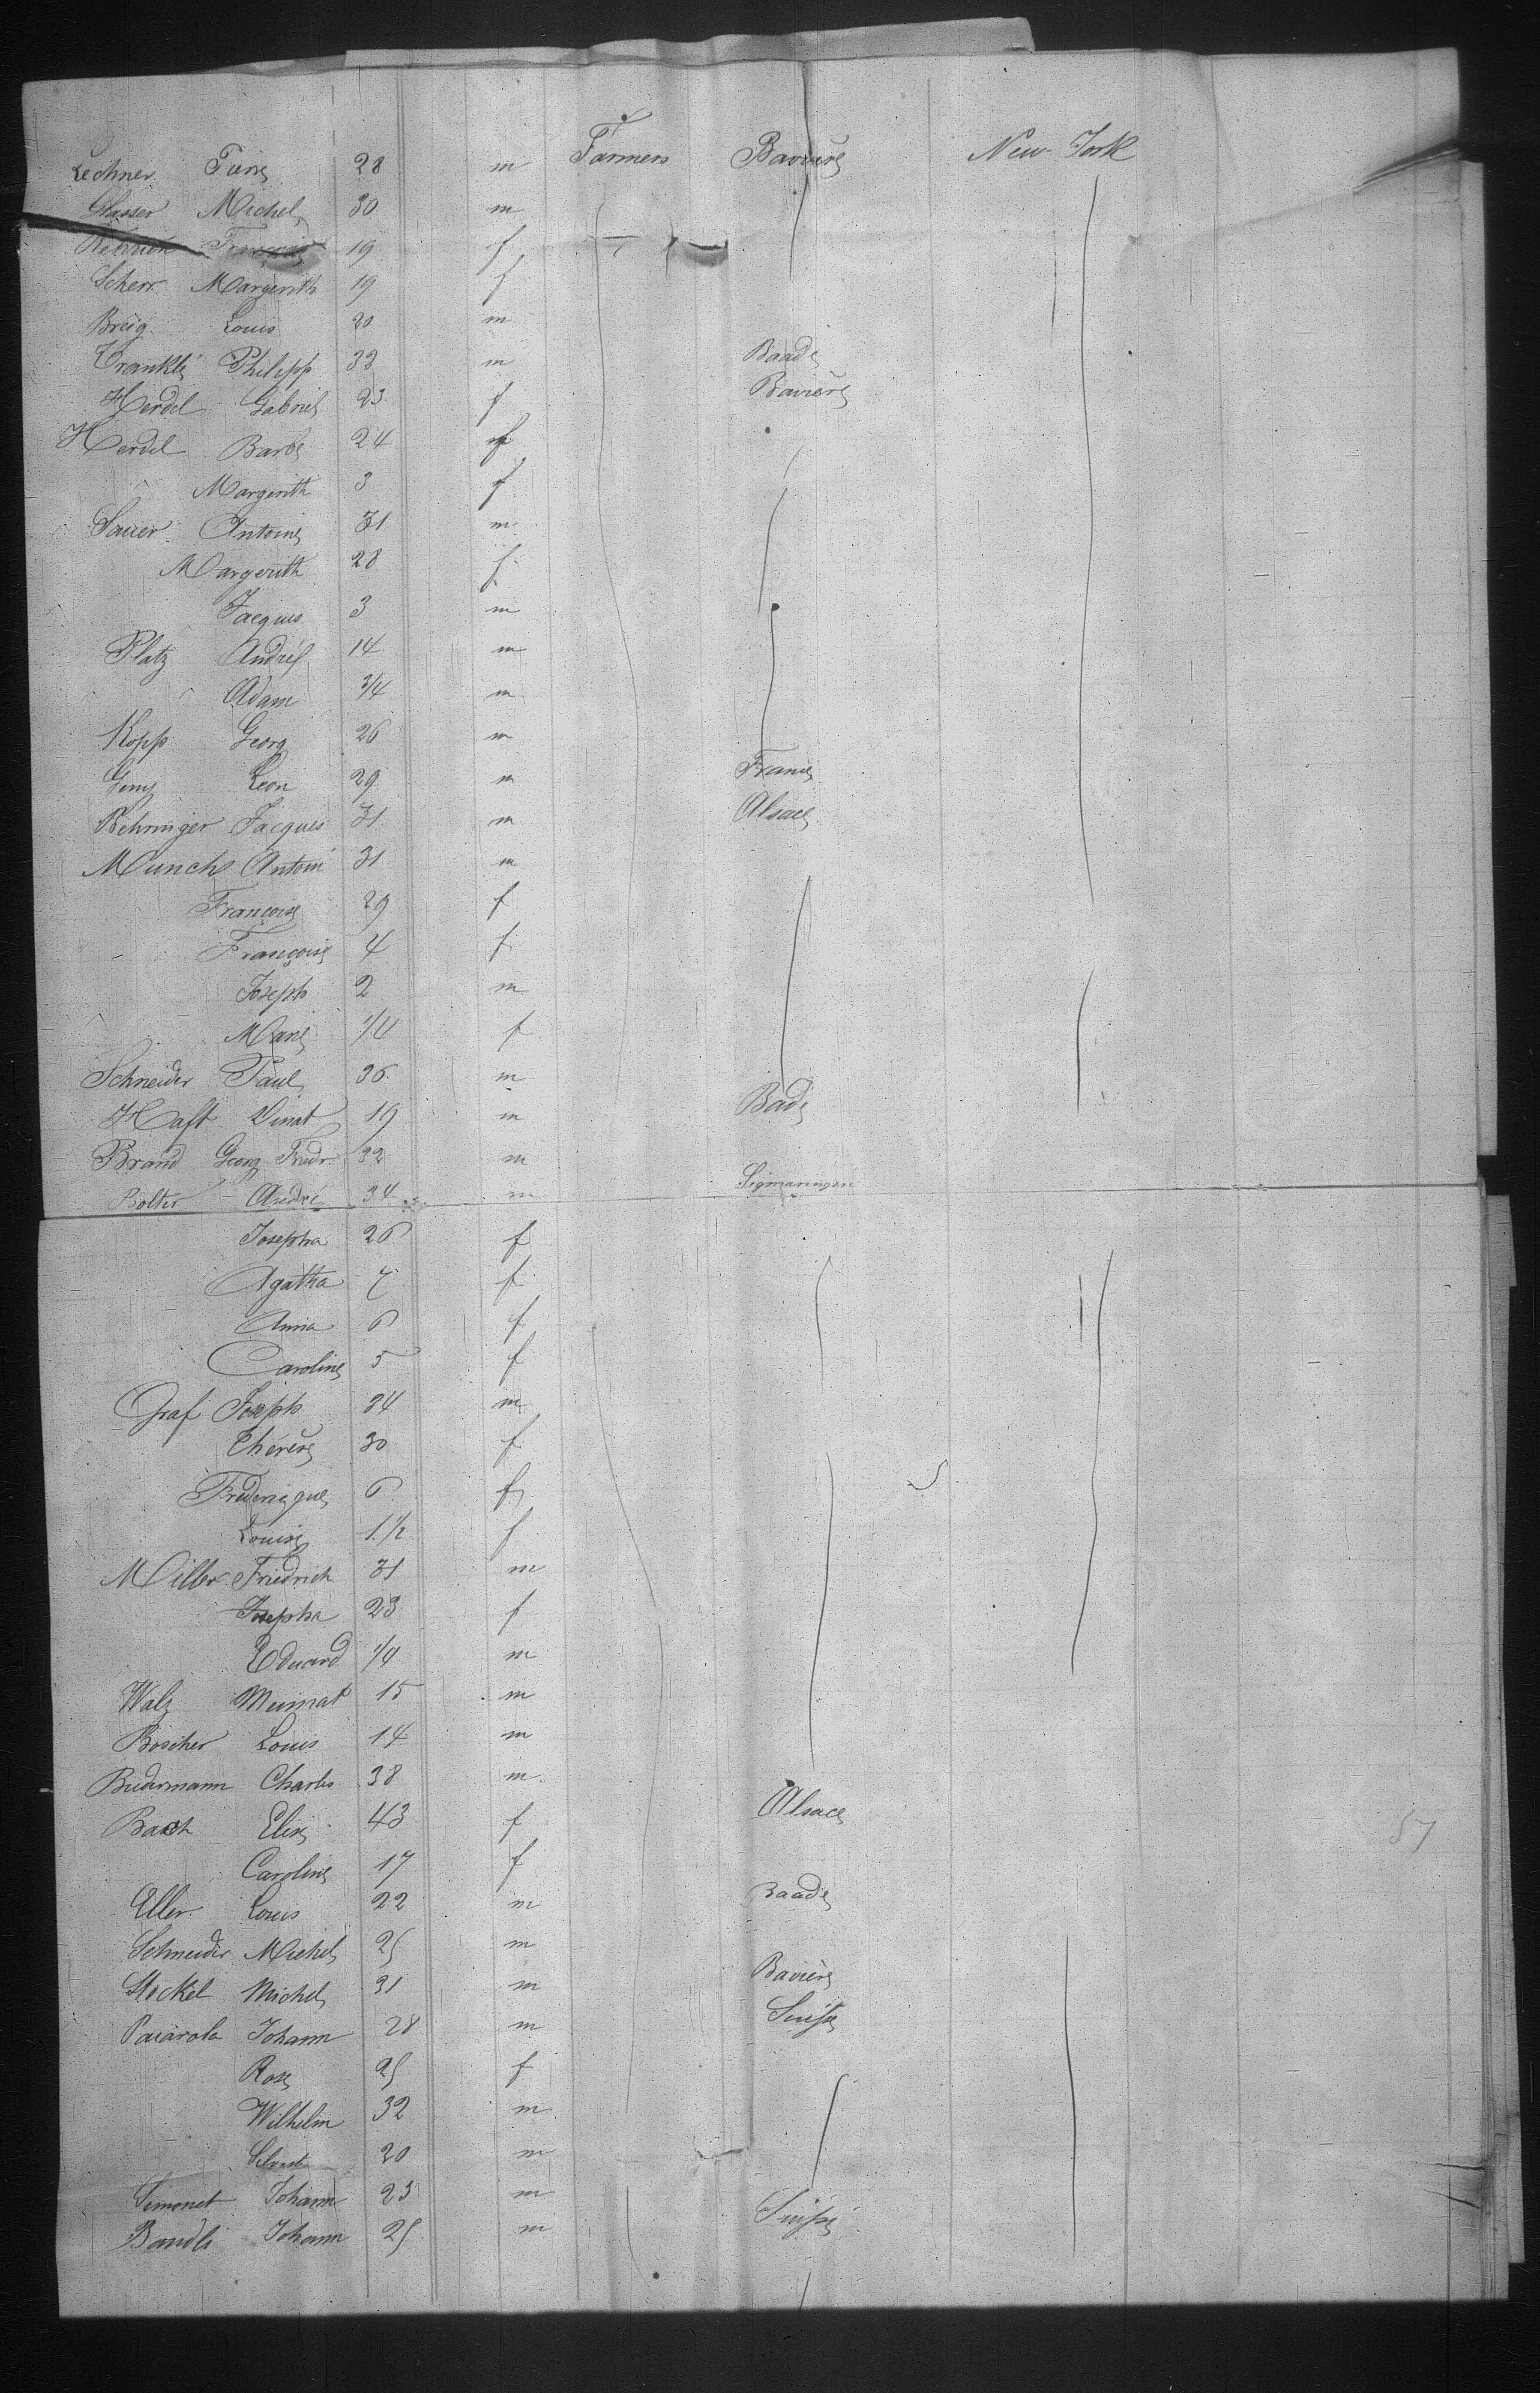 Lechner Pierre 28 m Farmers Bavière New-York
Glasser Michel 30 m
19 f
Scherr Margerith 19 f
Breig Louis 20 m
Philipp 33 m Baade
Herdel Gabriel 23 f Bavière
Herdel Barbe 24 f
Margerith 3 f
Sauer Antoine 31 m
Margerith 28 f
Jacques 3 m
Platz André 14 m
Adam 3/4 m
Kopp Georg 26 m
Geny Leon 29 m France
Behringer Jacques 31 m Alsace
Munch Antoin 31 m
Françoise 29 f
Françoise 4 f
Joseph 2 m
Marie 1/4 f
Schneider Paul 36 m
Haft 19 m Bade
Brand Georg Fredr. 32 m
Bolter André 34 m Sigmaringen
Josepha 26 f
Agatha 7 f
Anna 6 f
Caroline 5 f
Graf Joseph 34 m
Thérèse 30 f
Frederique 6 f
Louise 1 1/2 f
Miller Friedrich 31 m
Josepha 23 f
Eduard 1/4 m
Walz 15 m
Boscher Louis 14 m
Biedermann Charles 38 m
Bach Elise 43 f Alsace
57
Caroline 17 f
Eller Louis 22 m Baade
Schneider Michel 25 m
Stockel Michel 31 m Bavière
Paiarola Johann 28 m Suisse
Rose 25 f
Wilhelm 32 m
20 m
Simonet Johann 23 m
Bandli Johann 25 m Suisse